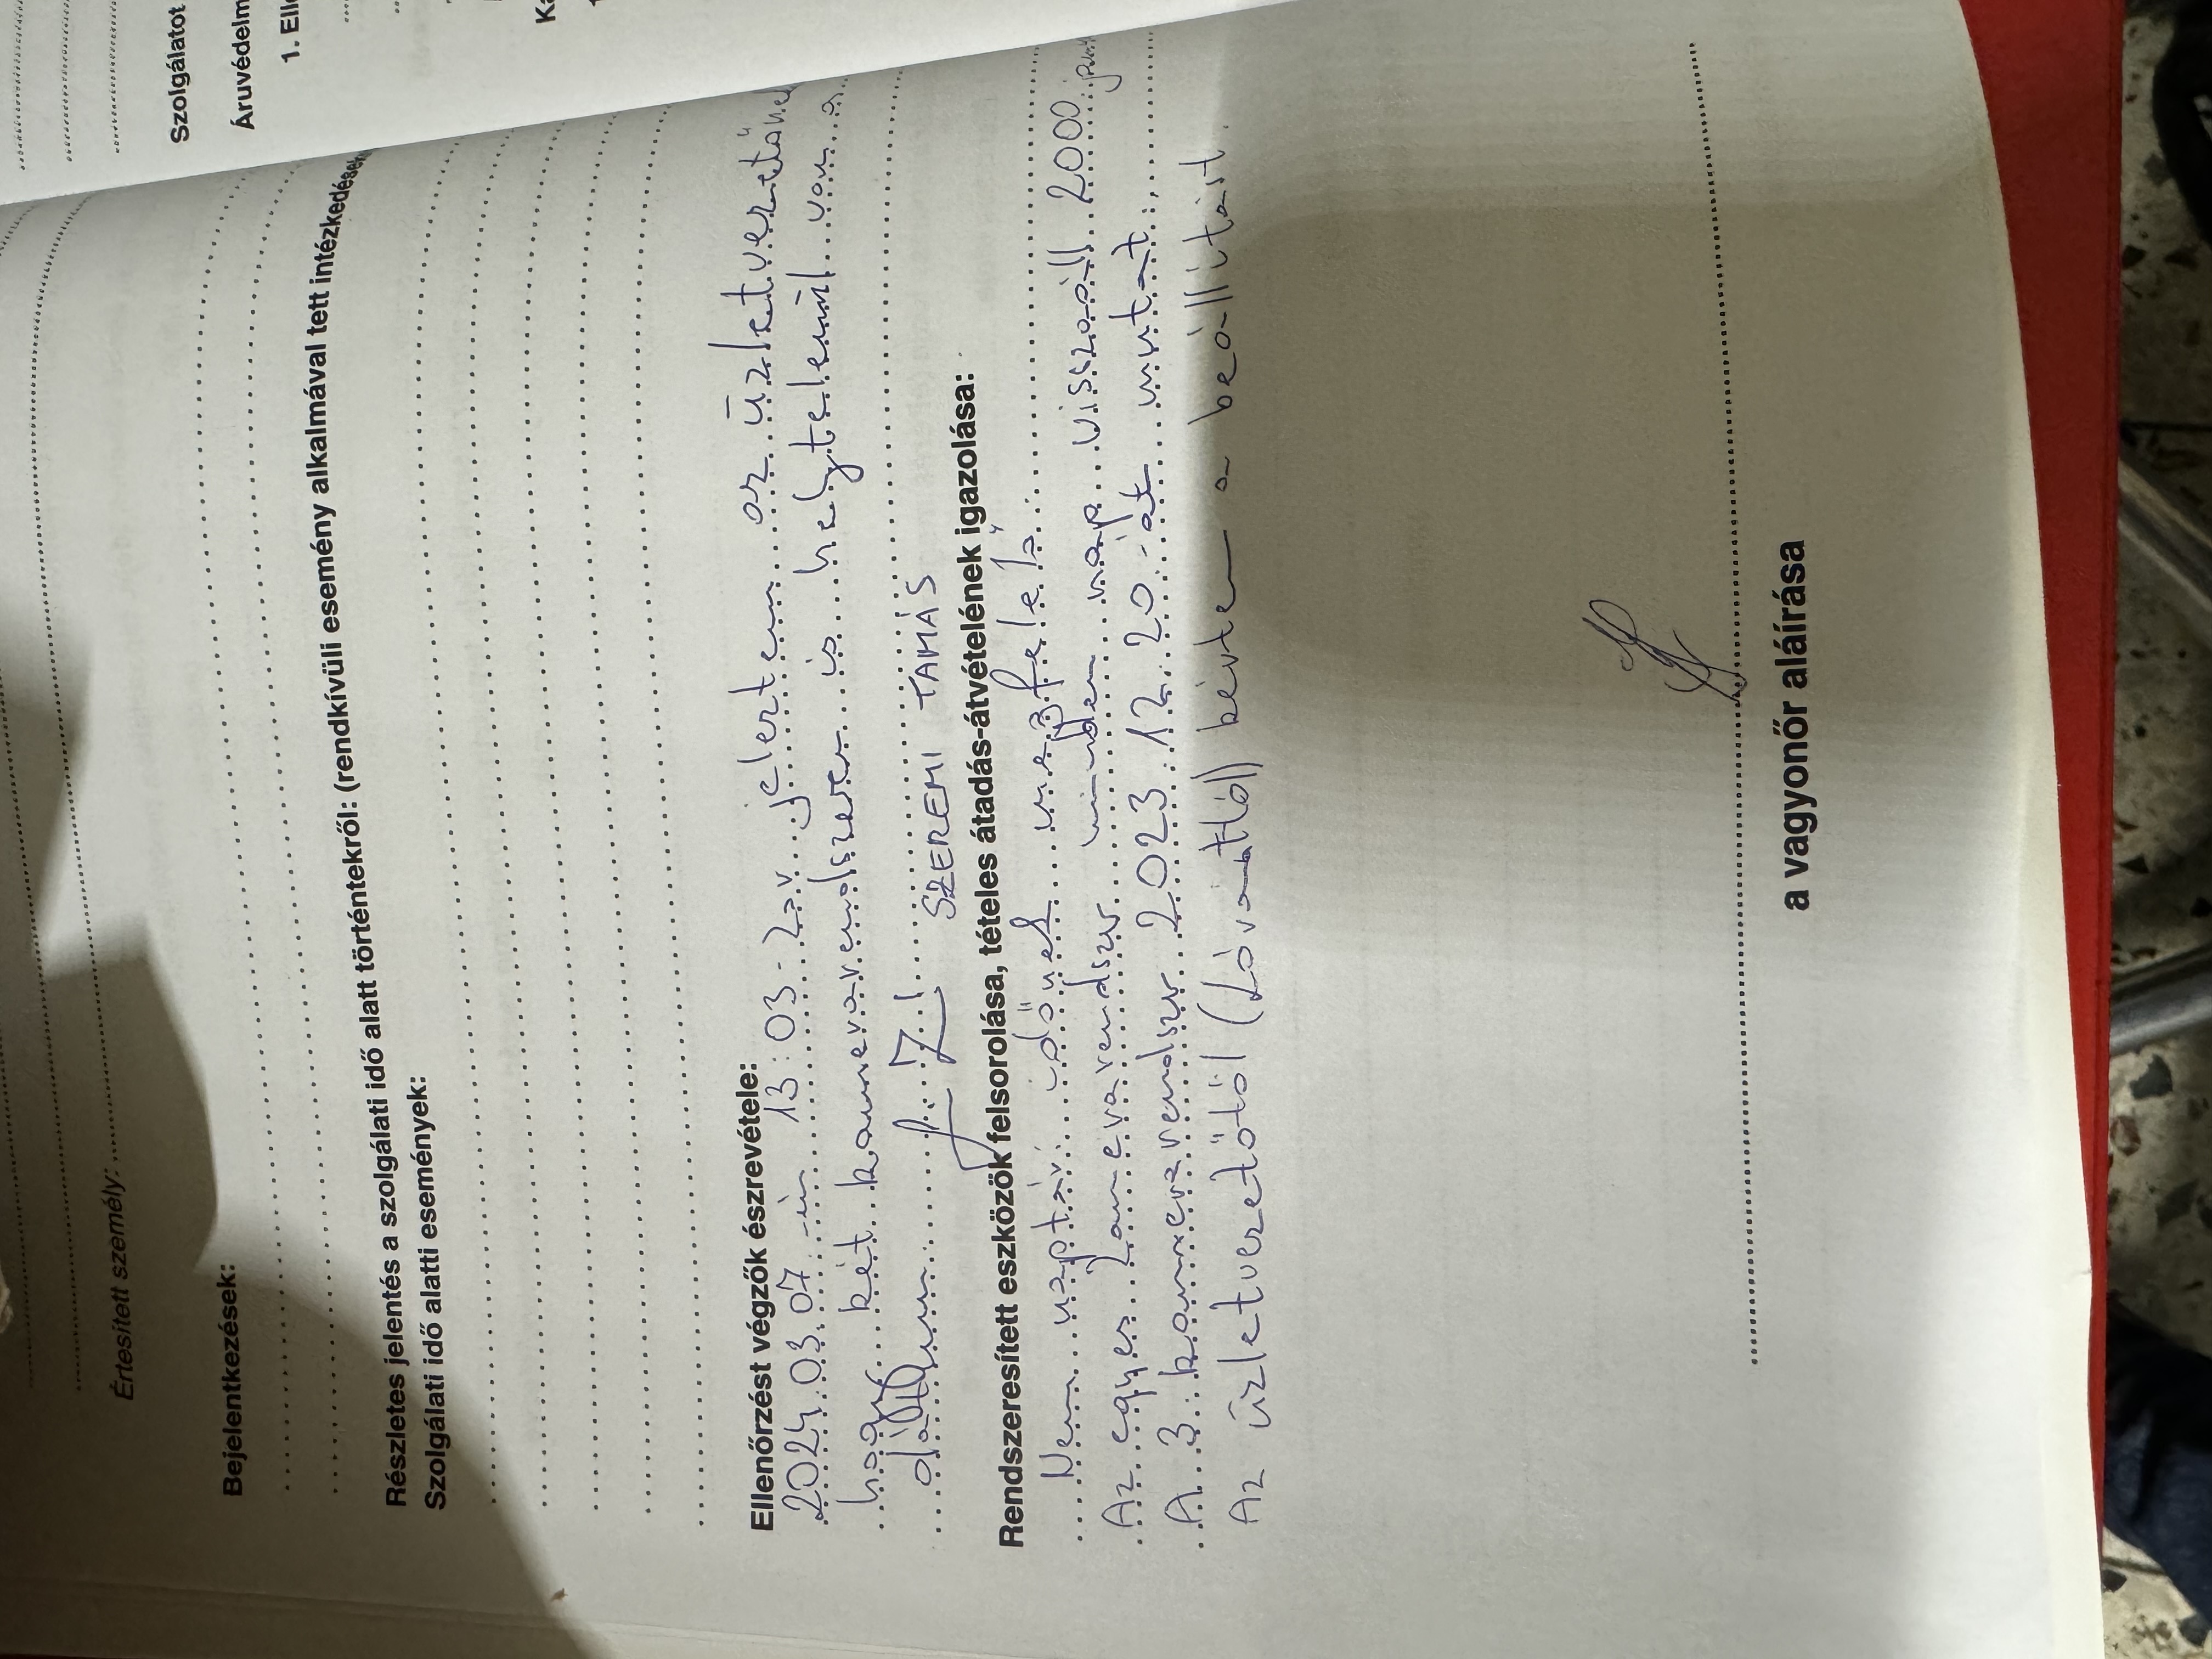 Szolgálatot
Áruvédelm
1. Ell
Értesített személy:
Bejelentkezések:
Részletes jelentés a szolgálati idő alatt történtekről: (rendkívüli esemény alkalmával tett intézkedések
Szolgálati idő alatti események:
Ellenőrzést végzők észrevétele:
2024.03.07-én 13:03-kor jeleztem az üzletvezetőnek
hogy két kamerarendszeren is helytelenül van a
dátum. SZEREMI TAMÁS
Rendszeresített eszközök felsorolása, tételes átadás-átvételének igazolása:
Nem naptári időnek megfelelő.
Az egyes kamerarendszer minden nap visszaáll 2000
A 3 kamerarendszer 2023.12.20-át mutat.
Az üzletvezetőtől kértem a beállítást.
a vagyonőr aláírása